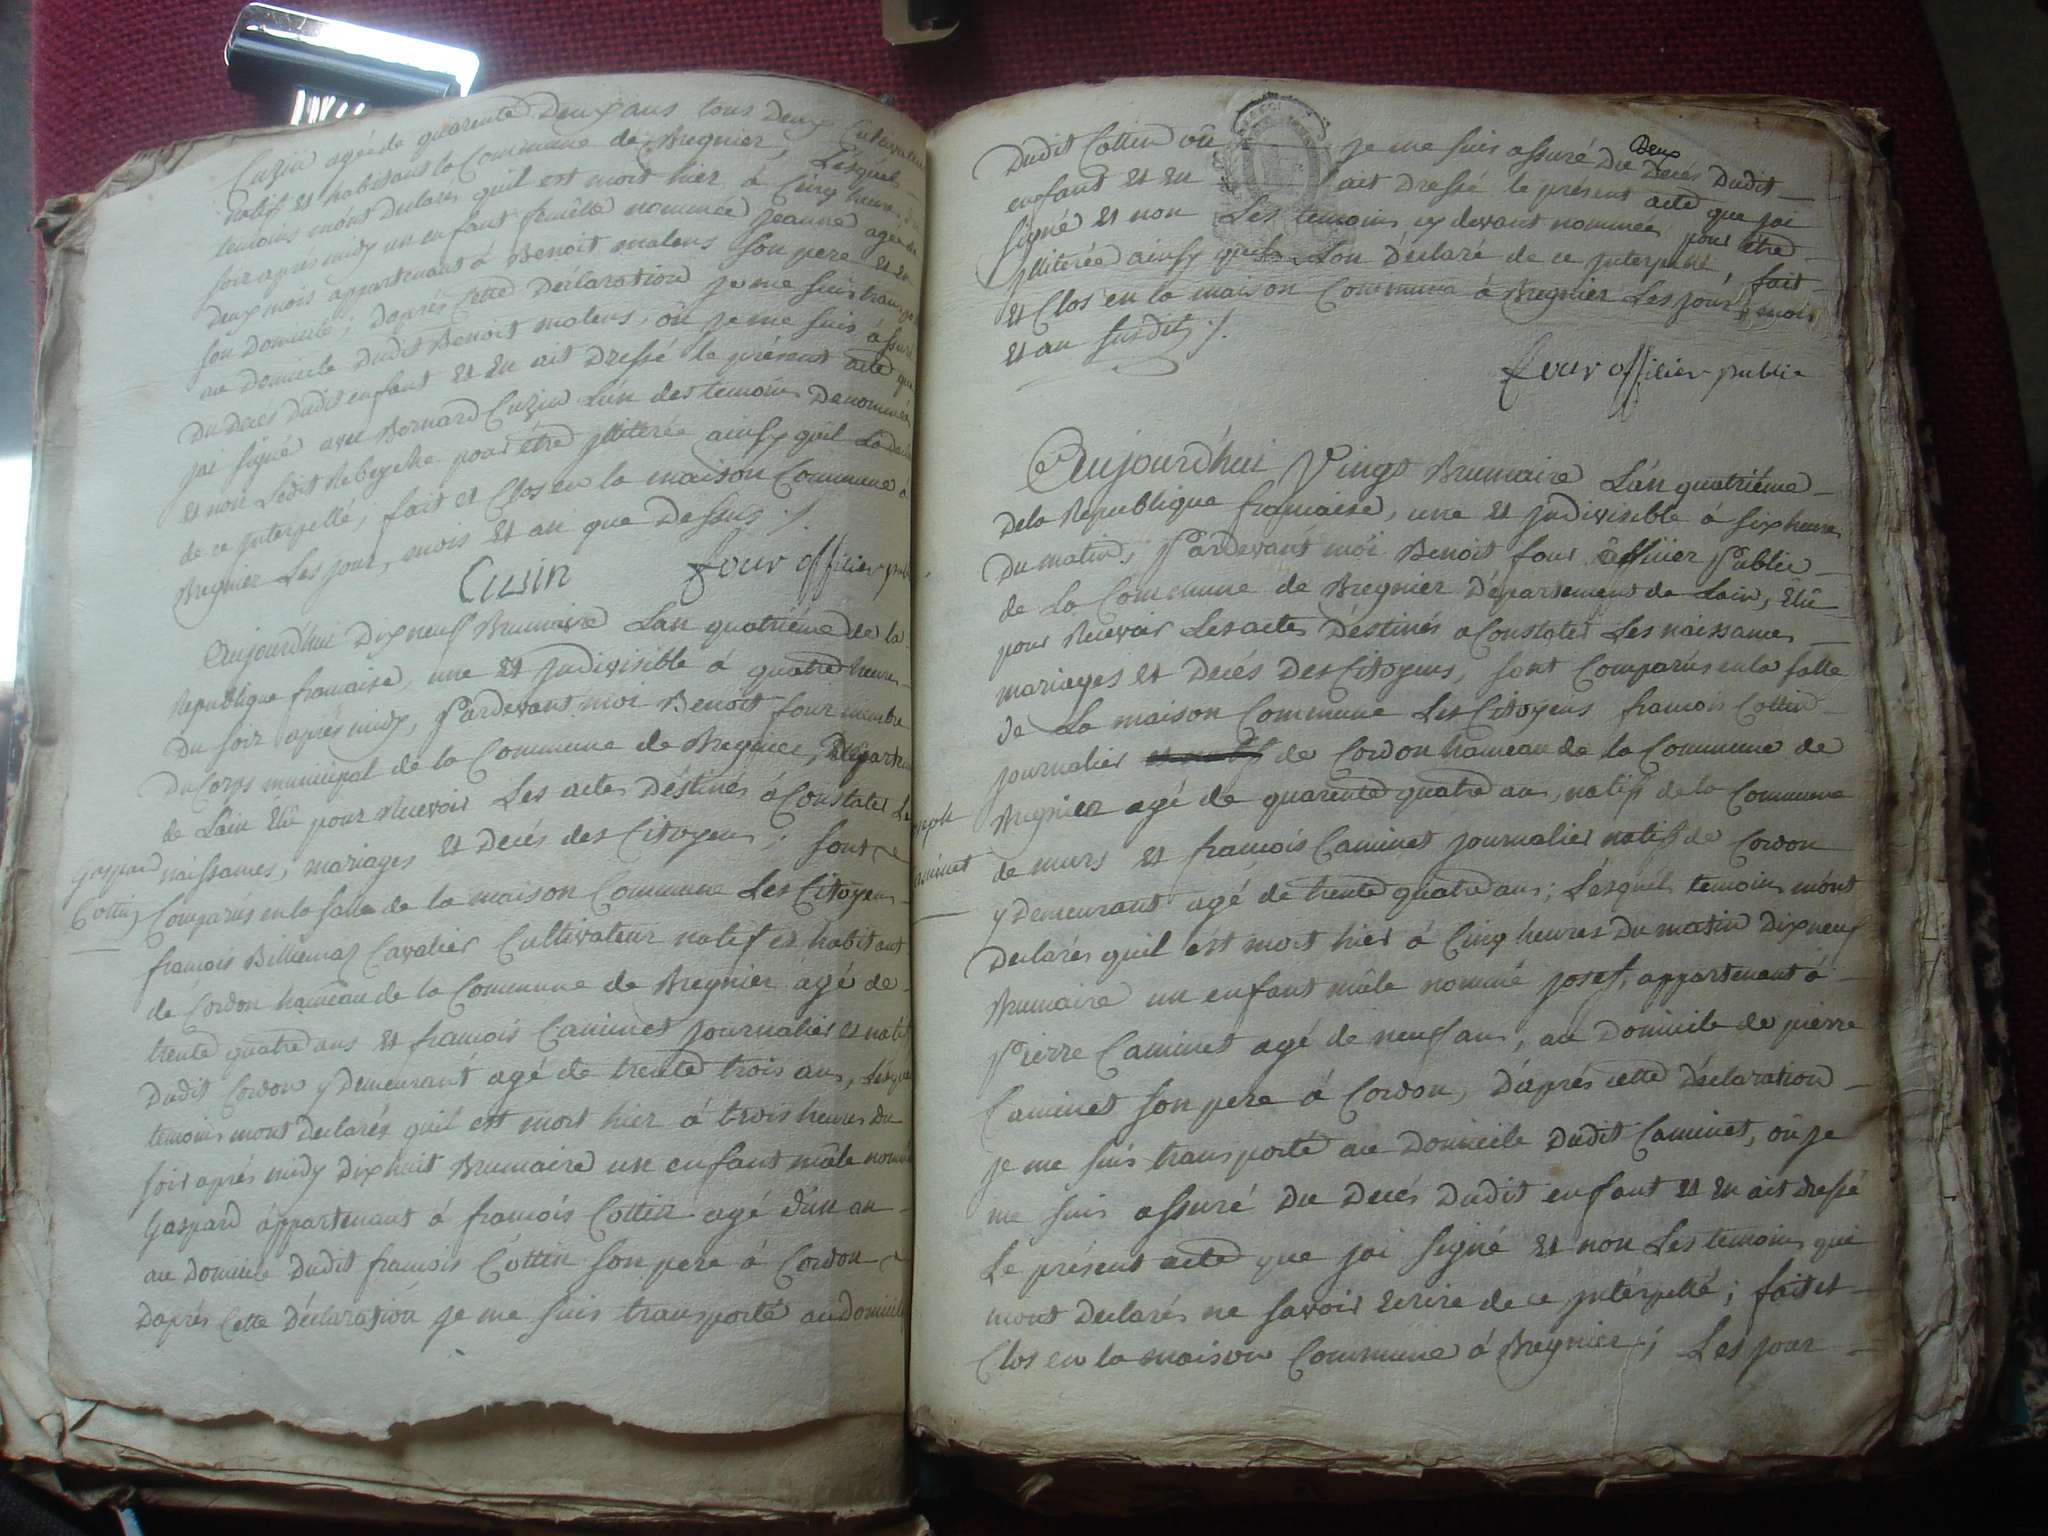 Cuzin agé de quarente Deux ans tous deux Cultivateur
natif et habitans la Commune de Bregnier, Lésquels
temoins m'ont Declarés quil est mort hier à Cinq heures du
soir aprés midy un enfant femélle nommée jeanne agée de
Deux mois appartenant à Benoit malens son pere et en
son Domicile; daprés Cette Declaration je me suis transporté
au Domicile dudit Benoit malens, oû je me suis àssuré
Du Decés Dudit enfant et en ait Dressé le présent acte que
jai signé avec Bernard Cuzin L'un des temoins Denommés
et non Ledit Rebeyche pour être jlliterée ainsy quil La declaré
de ce jnterpellé, fait et Clos en la maison Commune à
Bregnier Les jour, mois et an que Dessus ./.
Cusin four officier publi
Aujourd'hui Dix neuf Brumaire Lan quatriéme de la
Republique francaise, une et jndivisible à quatre heures
Du soir aprés midy, Pardevant moi Benoit four membre
Du Corps municipal de la Commune de Bregnier, Departement
de Lain Elû pour Recevoir Les actes Déstinés à Constater Les
Gaspard
Cottin
naissances, mariages et Decés des Citoyens; sont
Comparûs en la salle de la maison Commune Les Citoyens
francois Billiemaz Cavalier Cultivateur natif et habitant
de Cordon hameau de la Commune de Bregnier agé de
trente quatre ans et francois Caminet journalier et natif
Dudit Cordon y Demeurant agé de trente trois ans, Lésquels
temoins mont Declarés quil est mort hier à trois heures du
soir aprés midy Dix huit Brumaire un enfant mâle nommé
Gaspard appartenant à francois Cottin agé d'un an
au domicile dudit francois Cottin son pere à Cordon
Daprés Cette Déclaration je me suis transporté au Domicile
Dudit Cottin oû je me suis assuré Du Decés Dudit
Deux
enfant et en ait Dressé le présent acte que jai
signé et non Les temoins cy devant nommées pour être
jlliterée ainsy quils Lon Déclaré de ce jnterpellé, fait
et Clos en la maison Commune à Bregnier Les jour, mois
et an susdits ./.
four officier public
Aujourd'hui Vingt Brumaire L'an quatriéme
De la Republique francaise, une et jndivisible à six heures
Du matin, Pardevant moi Benoit four officier Public
de La Commune de Bregnier Département de Lain, Elû
pour Recevoir Les actes Déstinés a Constater Les naissances
mariages et Decés Des Citoyens, sont Comparûs en la salle
de La maison Commune Les Citoyens francois Cottin
journalier et natif de Cordon hameau de la Commune de
Joseph
Caminet
Bregnier agé de quarente quatre ans, natif de la Commune
de murs et francois Caminet journalier natif de Cordon
y Demeurant agé de trente quatre ans; Lésquels temoins m'ont
Declarés quil est mort hier à Cinq heures Du matin Dix neuf
Brumaire un enfant mâle nommé josef, appartenant à
Pierre Caminet agé de neuf ans, au Domicile de pierre
Caminet son pere à Cordon, D'aprés cette Déclaration
je me suis transporté au Domicile Dudit Caminet, oû je
me suis assuré Du Decés Dudit enfant et en ait dressé
Le présent acte que jai signé et non Les temoins qui
mont Declarés ne savoir Ecrire de ce jnterpellé; fait et
Clos en la maison Commune à Bregnier; Les jour